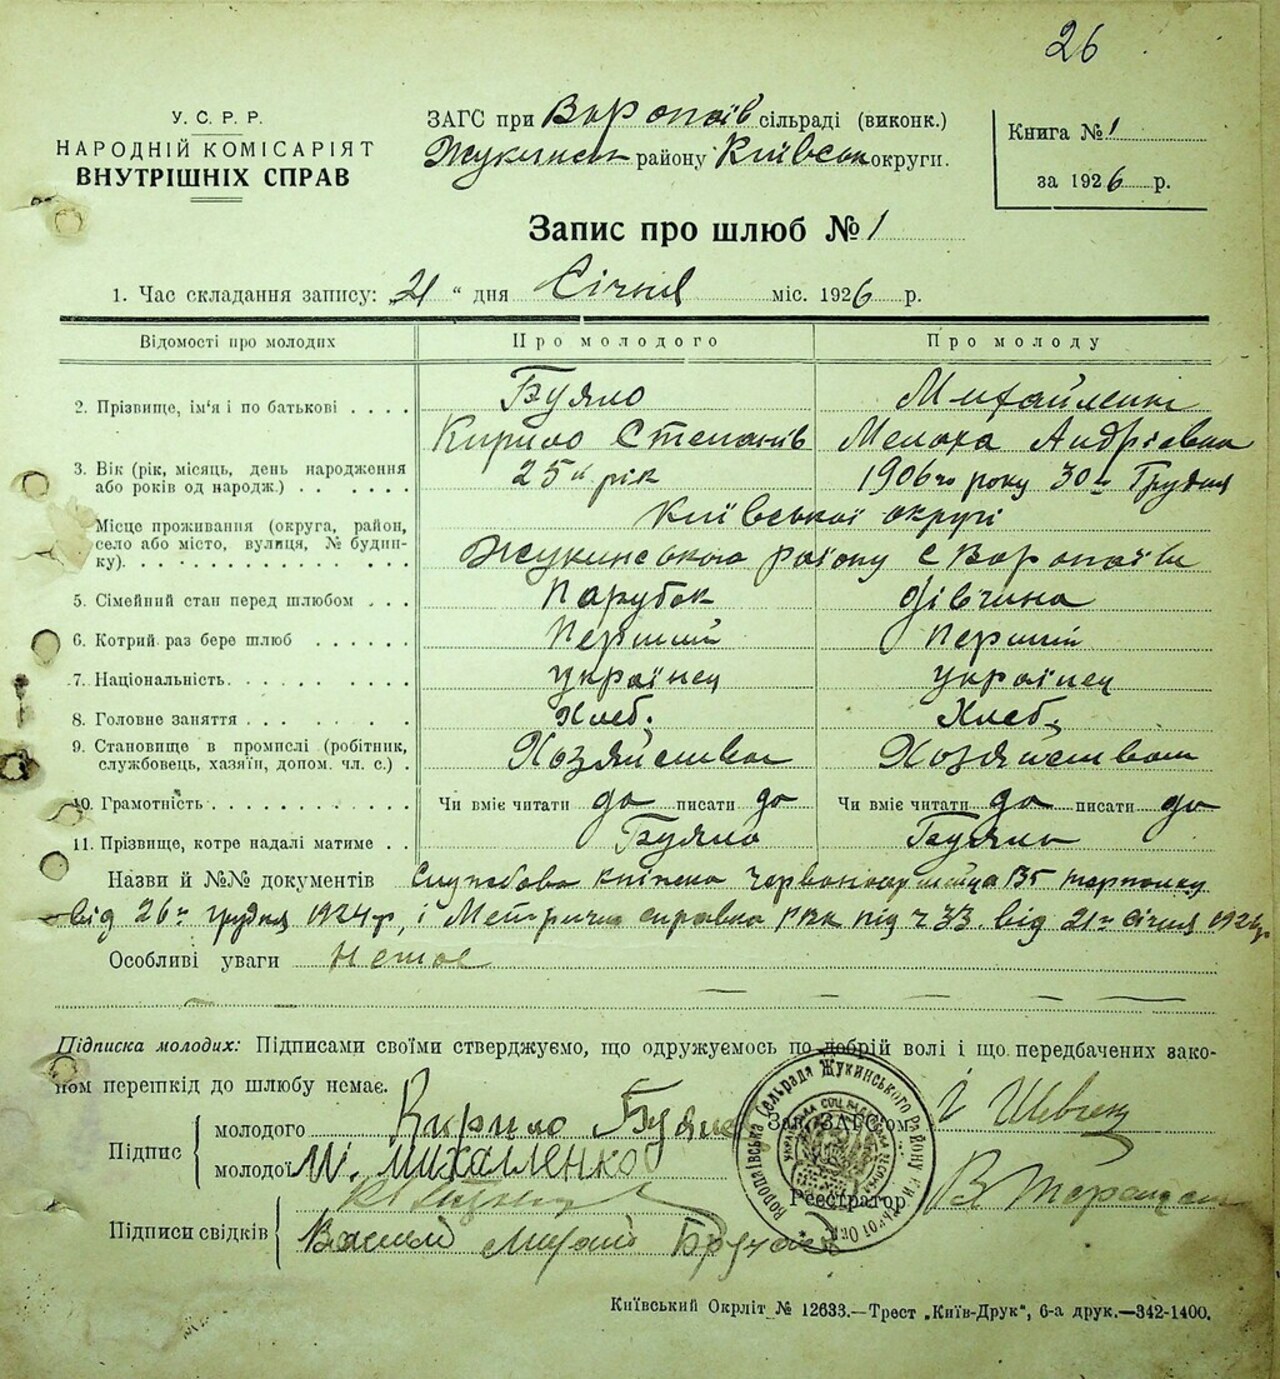 26
У. С. Р. Р.
НАРОДНІЙ КОМІСАРІЯТ
ВНУТРІШНІХ СПРАВ
ЗАГС при Воропаїв сільраді (виконк.)
Жукинськ району Київськ округи.
Книга № 1
за 1926 р.
Запис про шлюб № 1
1. Час складання запису: „21 “ дня Січня міс. 1926 р.
Відомості про молодих Про молодого Про молоду
2. Прізвище, ім'я і по батькові . . . . Буяло Михайленко
Кирило Степанів Мелаха Андріевна
3. Вік (рік, місяць, день народження або років од народж.) . . . . . . 25й рік 1906го року 30го Грудня
Київської округи
Місце проживання (округа, район, село або місто, вулиця, № будинку). Жукинського району с Воропаїв
5. Сімейний стан перед шлюбом . . . Парубок дівчина
6. Котрий раз бере шлюб . . . . . . Перший Перший
7. Національність. . . . . . . . . . українец українец
8. Головне заняття . . . . . . . . . Хлеб. Хлеб.
9. Становище в промислі (робітник, службовець, хазяїн, допом. чл. с.) .
10. Грамотність . . . . . . . . . . . Чи вміє читати до писати до Чи вміє читати до писати до
11. Прізвище, котре надалі матиме . . Буяло Буяло
Назви й №№ документів Службова книжка Червоноармейца
від 26го грудня 1924р, і Метрична справка РВК під ч 33 від 21го Січня 1926р
Особливі уваги Немае
Підписка молодих: Підписами своїми стверджуємо, що одружуємось по добрій волі і що передбачених зако-
ном перешкід до шлюбу немає.
Підпис
молодого Кирило Буяло
молодої М. Михайленко
Зав. ЗАГС'ом: Шевченко
Реєстратор В
Підписи свідків
Василь
Воропаївська Сельрада Жукинського Району
Київський Окрліт № 12633.—Трест „Київ-Друк“, 6-а друк.—342-1400.